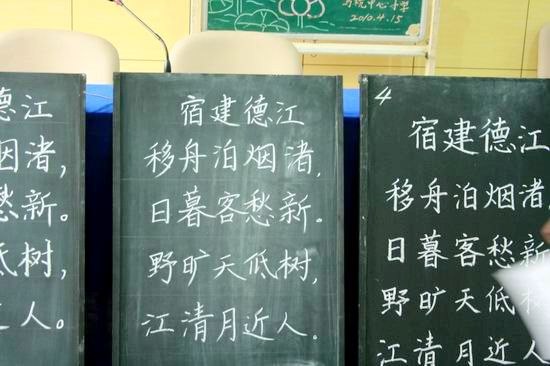 中心小学
2010.4.15
德江
烟渚,
愁新。
低树,
人。
宿建德江
移舟泊烟渚,
日暮客愁新。
野旷天低树,
江清月近人。
4
宿建德江
移舟泊烟渚
日暮客愁
野旷天低
江清月近人